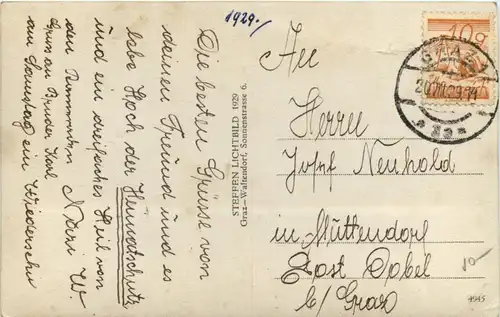 1929.
Die besten Grüsse von
deinen Freund und es
lebe Hoch der Heimatschutz
und ein dreifaches Heil von
den Nazi W.
Gruss an Bruder Karl
am Samstag ein Wiedersehn
STEFFEN LICHTBILD 1929
Graz-Waltendorf, Sonnenstrasse 6.
10g
GRAZ
An
Herrn
Josef Neuhold
in Müttendorf
Post Dobel
b/ Graz
10
4945